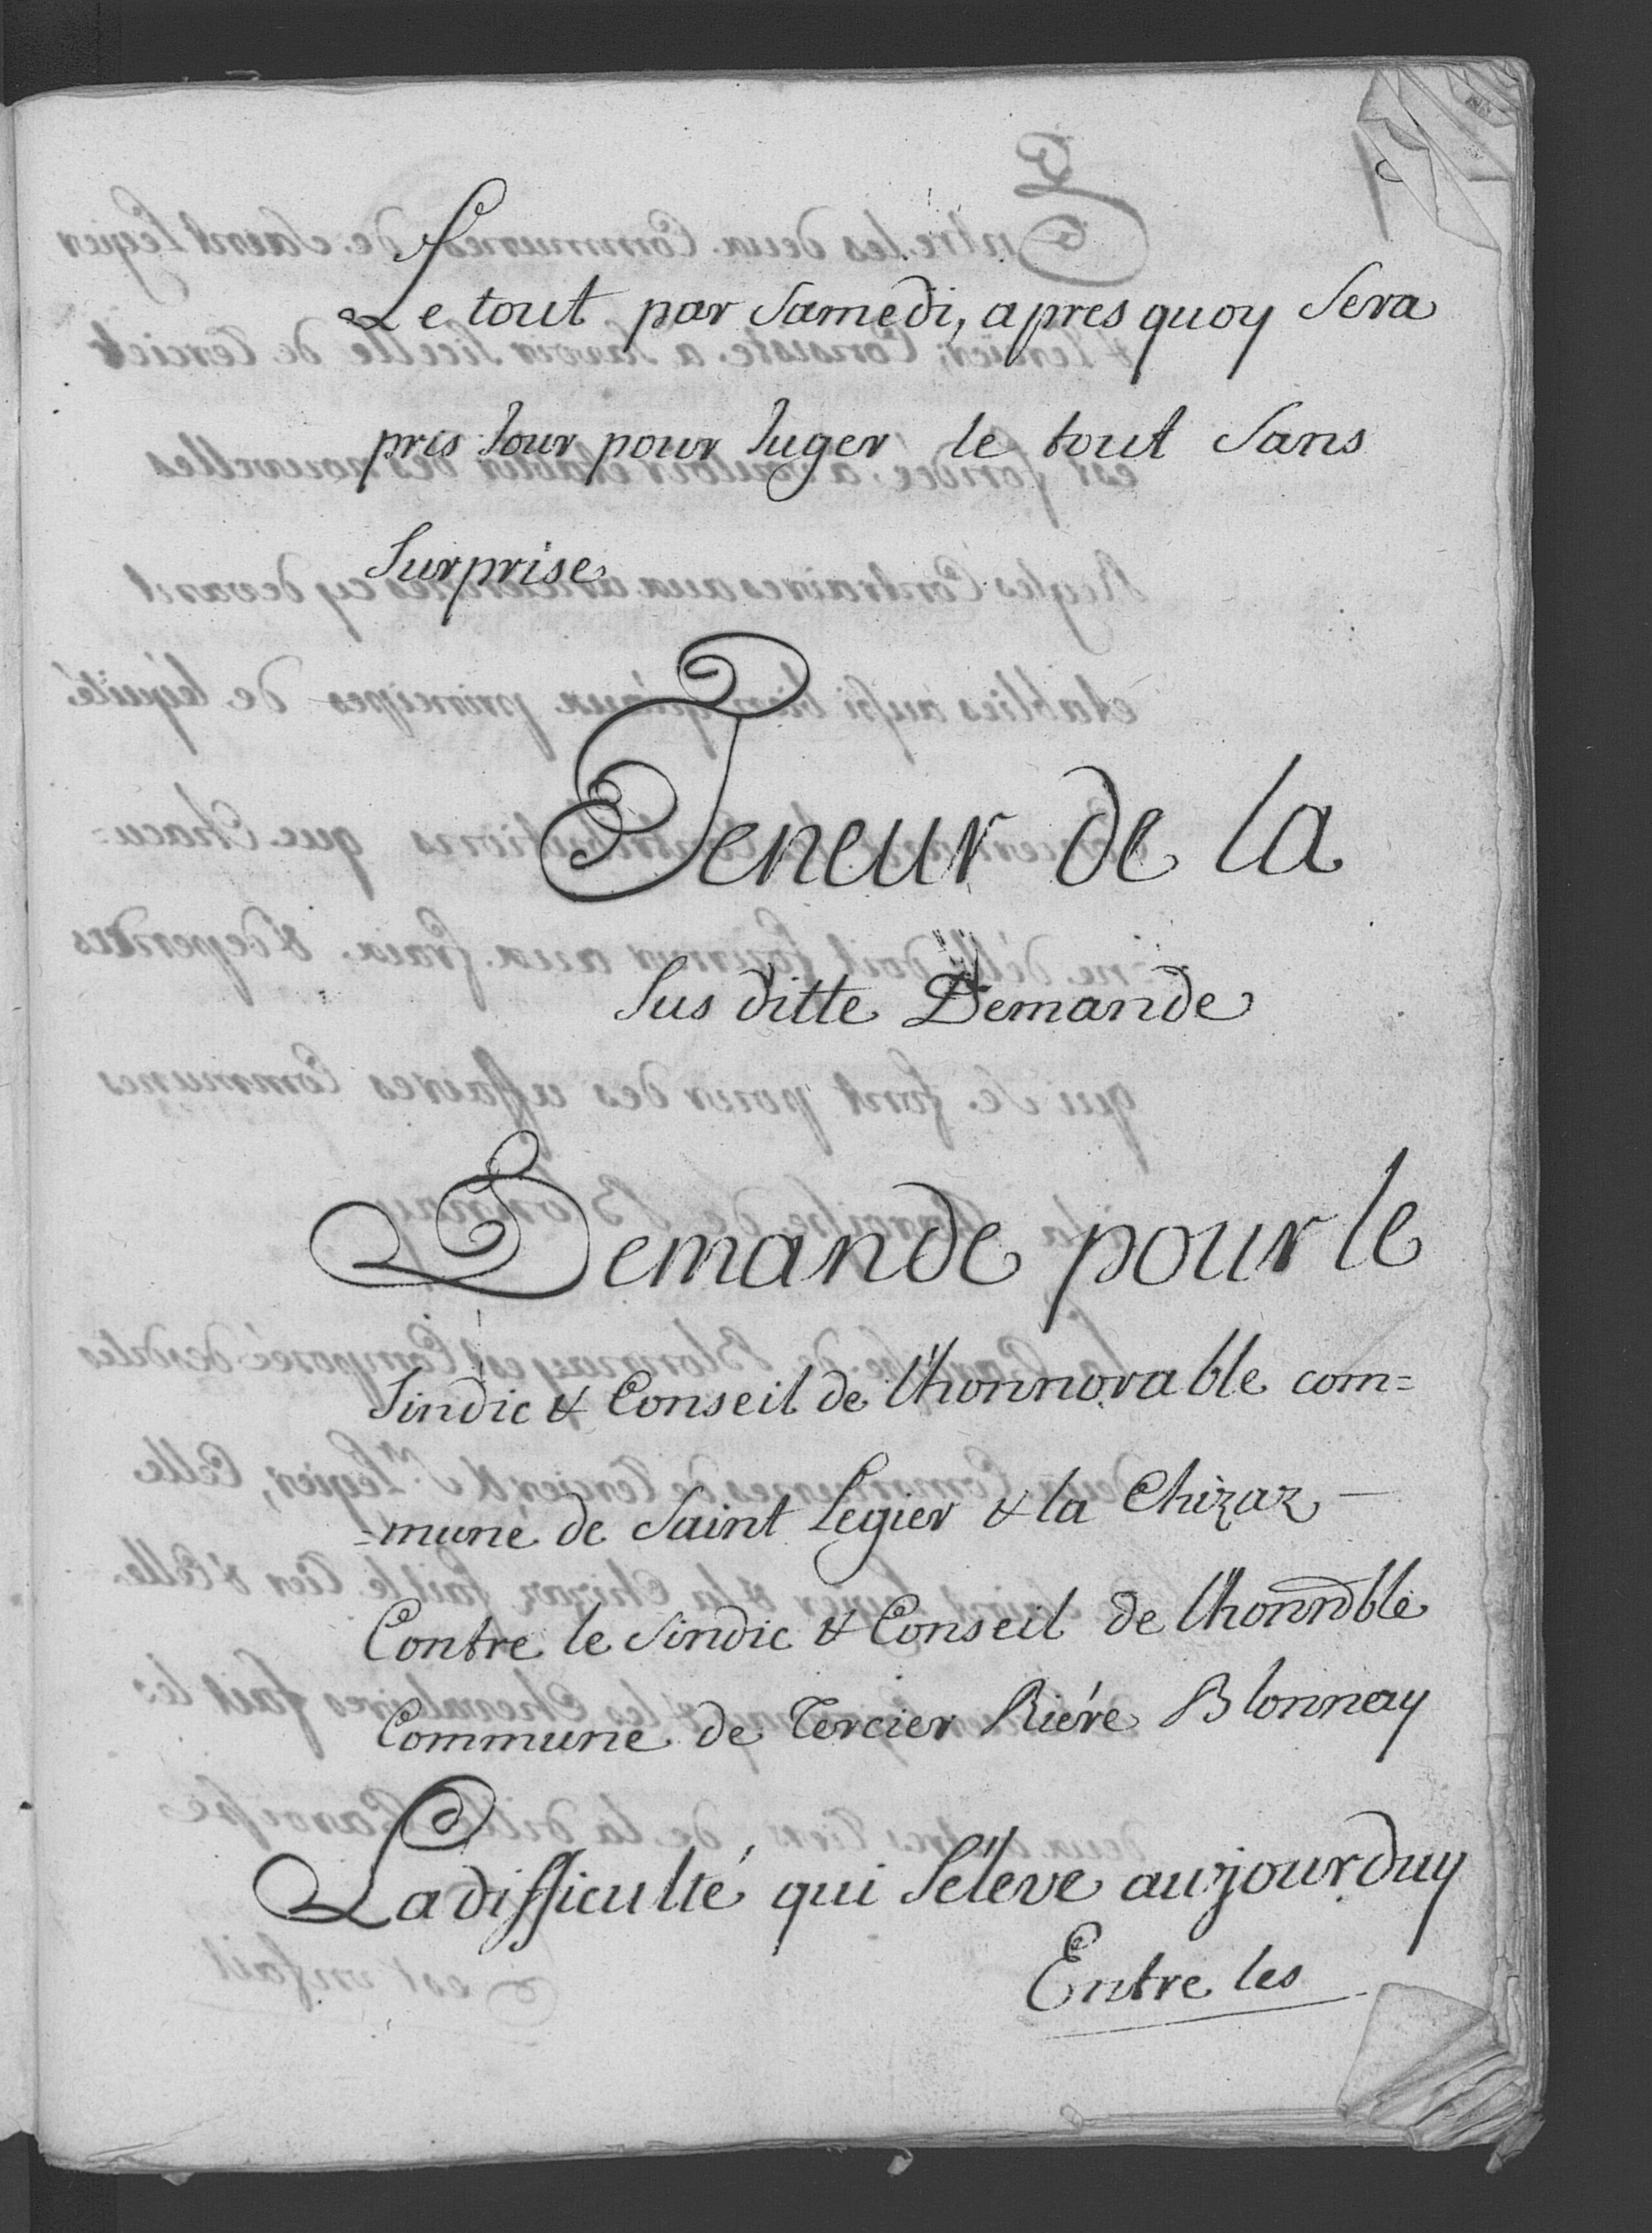 Le tout par Samedi, apres quoy Sera
pris Jour pour Juger le tout Sans
Surprise
Teneur de la
Sus ditte Demande
Demande pour le
Sindic & Conseil de l'honnorable com=
=mune de Saint Legier & la Chizaz
Contre le Sindic & Conseil de l'honnoble
Commune de Tercier Riére Blonnay
La difficulté qui S'éleve aujourduy
Entre les